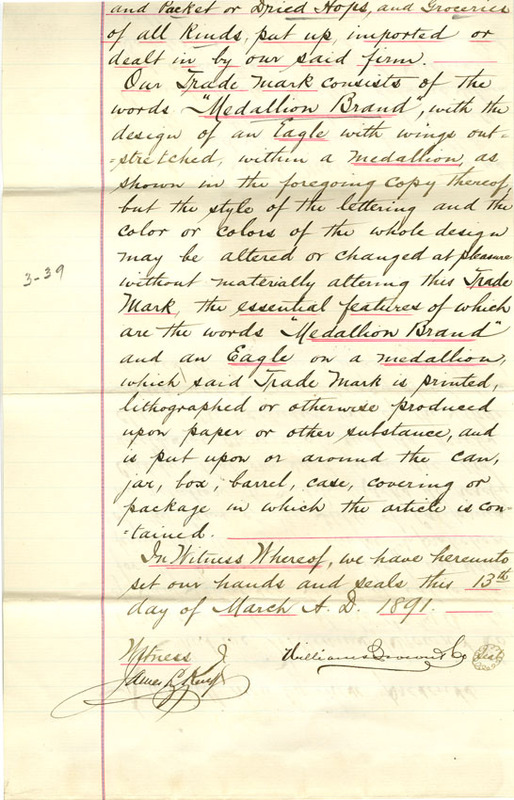 and Packet or Dried Hops, and Groceries
of all Kinds, put up, imported or
dealt in by our said firm.
Our Trade Mark consists of the
words "Medallion Brand", with the
design of an Eagle with wings out=
=stretched, within a medallion, as
shown in the foregoing copy thereof,
but the style of the lettering and the
color or colors of the whole design
may be altered or changed at pleasure
without materially altering this Trade
Mark, the essential features of which
are the words "Medallion Brand"
and an Eagle on a medallion,
which said Trade Mark is printed,
lithographed or otherwise produced
upon paper or other substance, and
is put upon or around the can,
jar, box, barrel, case, covering or
package in which the article is con=
=tained.
3-39
In Witness Whereof, we have hereunto
set our hands and seals this 13th
day of March A.D. 1891.
Witness
Williams Brown & Co
James